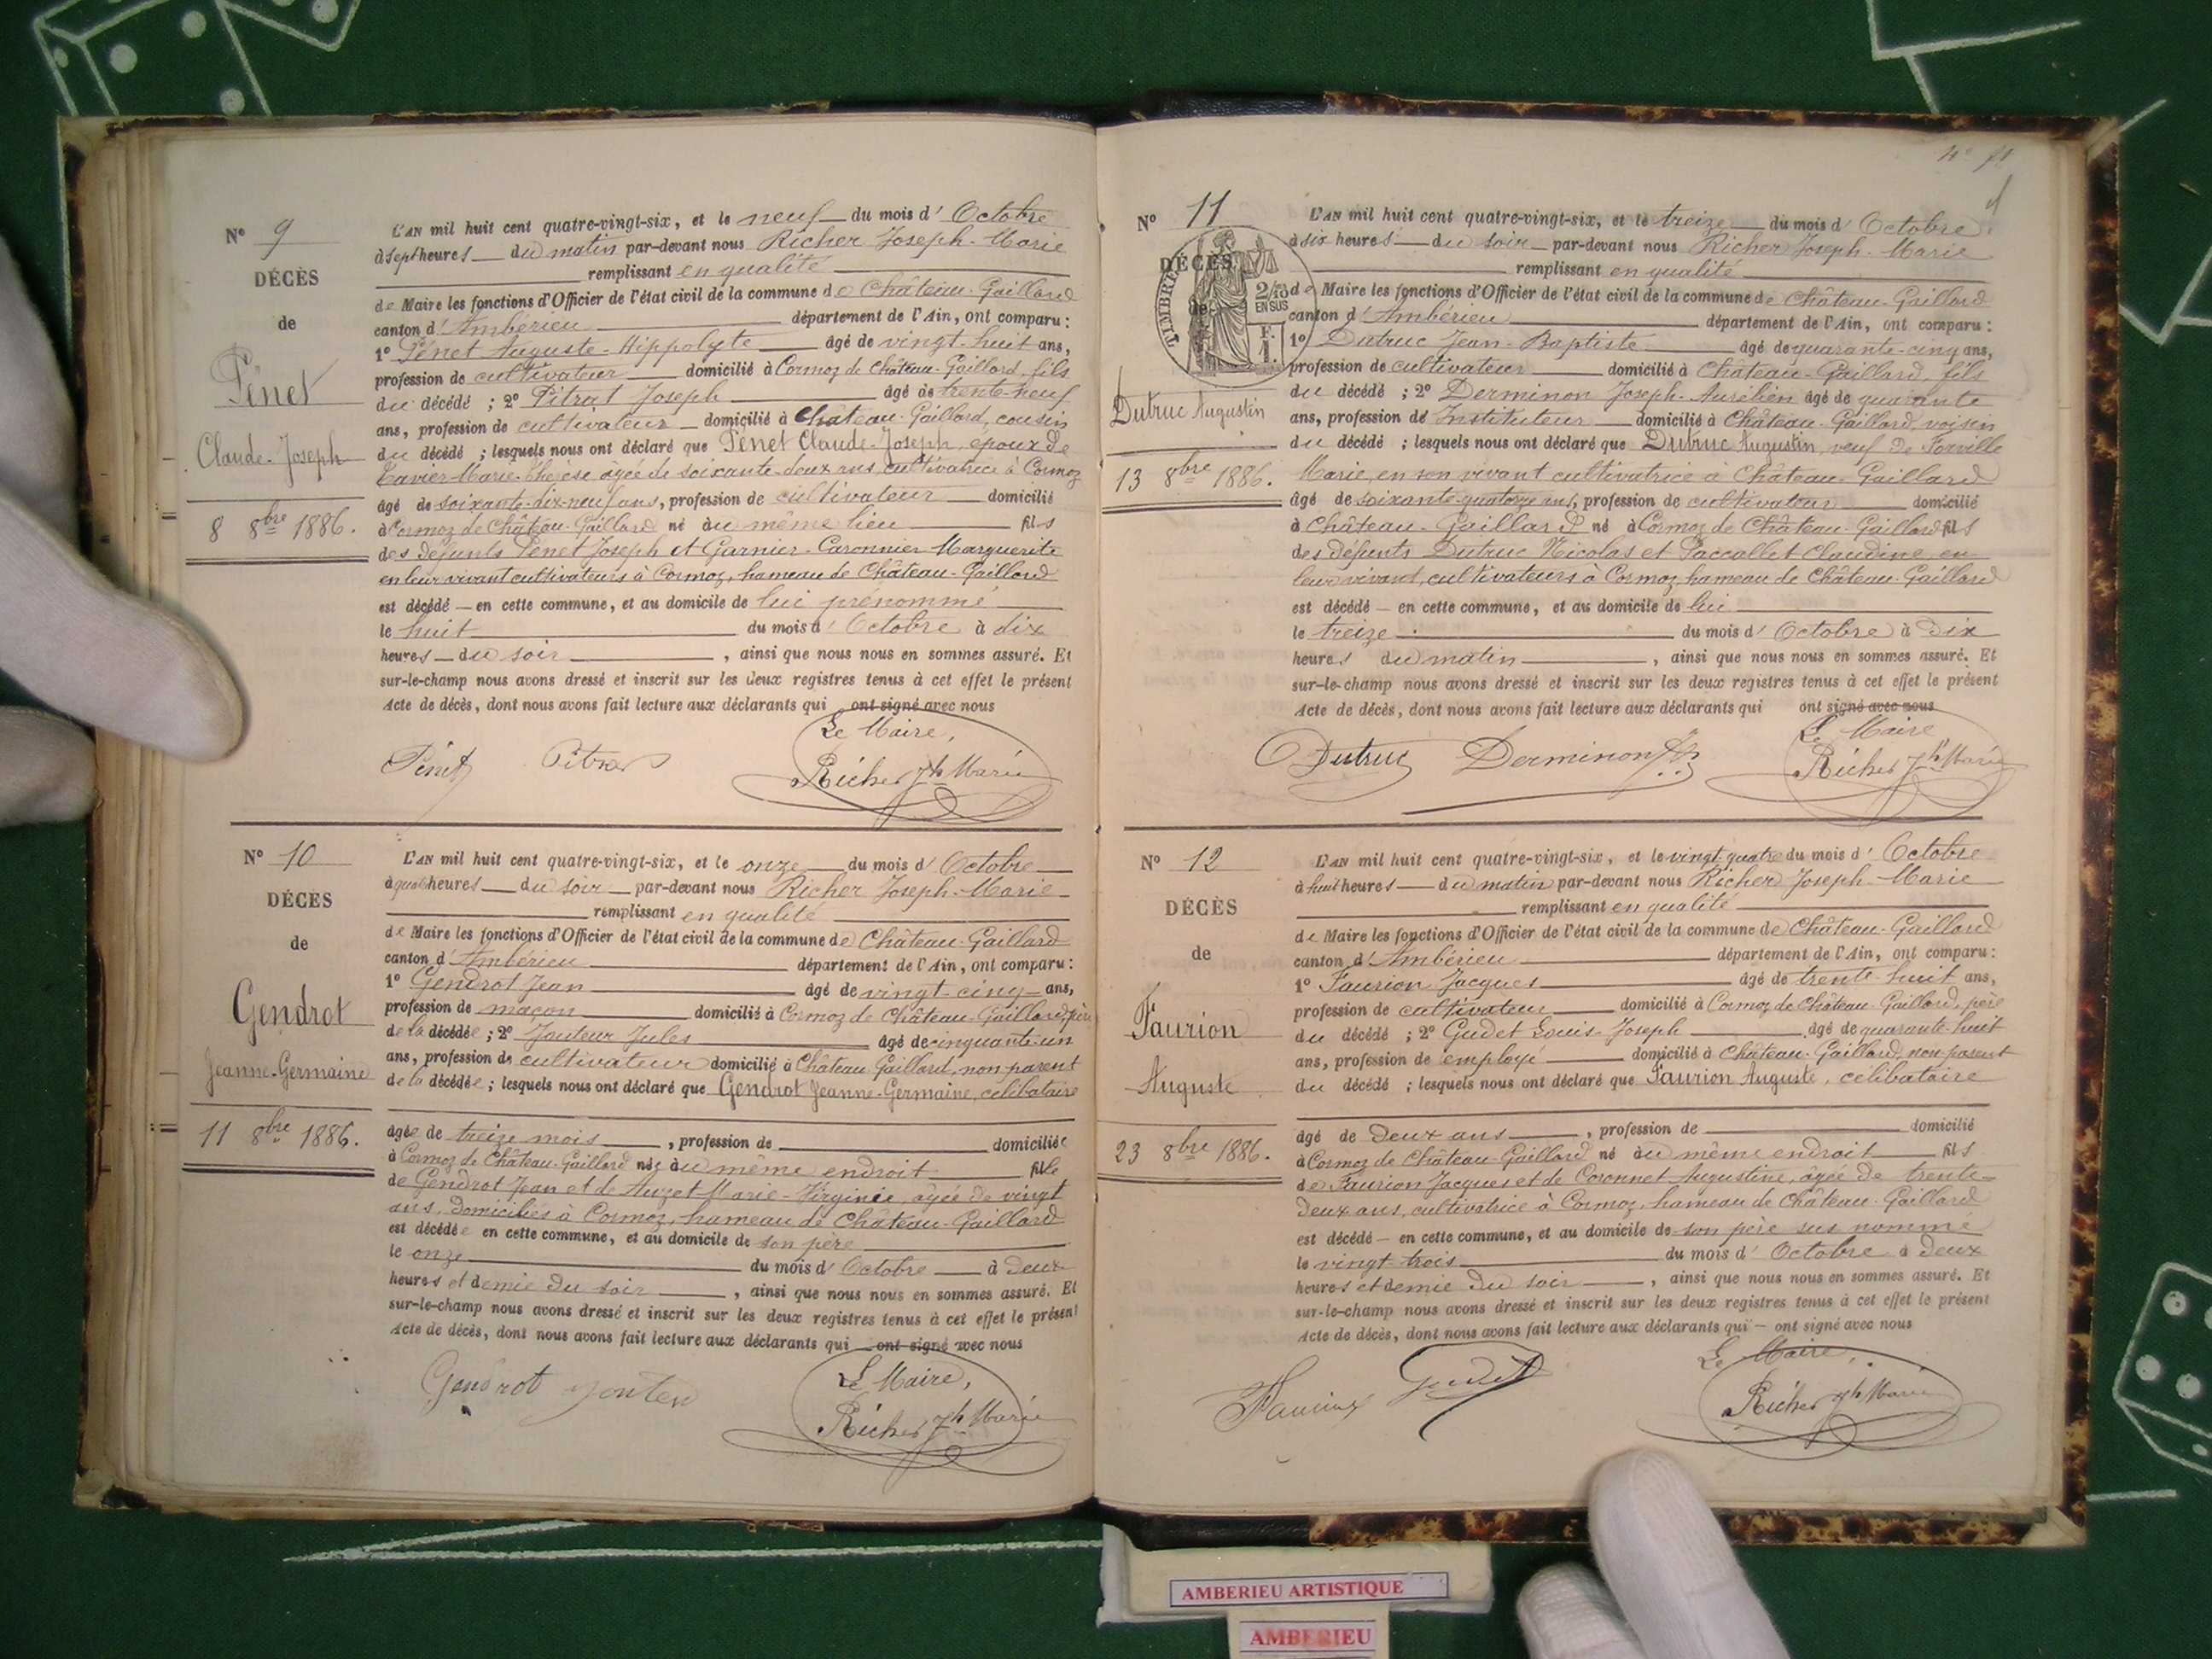 N° 9
DÉCÈS
de
Pénet
Claude-Joseph
8 8bre 1886.
L'AN mil huit cent quatre-vingt-six, et le neuf du mois d'Octobre
à sept heures du matin par-devant nous Richer Joseph-Marie
remplissant en qualité
de Maire les fonctions d'Officier de l'état civil de la commune de Château-Gaillard
canton d'Ambérieu département de l'Ain, ont comparu :
1° Pénet Auguste-Hippolyte âgé de vingt-huit ans,
profession de cultivateur domicilié à Cormoz de Château-Gaillard, fils
du décédé ; 2° Pitrat Joseph âgé de trente-neuf
ans, profession de cultivateur domicilié à Château-Gaillard, cousin
du décédé ; lesquels nous ont déclaré que Pénet Claude-Joseph, époux de
Marie-Thérèse agée de soixante-deux ans, cultivatrice à Cormoz
âgé de soixante-dix-neuf ans, profession de cultivateur domicilié
à Cormoz de Château-Gaillard né au même lieu fils
des défunts Pénet Joseph et Garnier-Caronnier Marguerite
en leur vivant cultivateurs à Cormoz, hameau de Château-Gaillard
est décédé en cette commune, et au domicile de lui prénommé
le huit du mois d'Octobre à dix
heures du soir, ainsi que nous nous en sommes assuré. Et
sur-le-champ nous avons dressé et inscrit sur les deux registres tenus à cet effet le présent
Acte de décès, dont nous avons fait lecture aux déclarants qui ont signé avec nous
Le Maire,
Pénet Pitrat Richer Jh Marie
N° 10
DÉCÈS
de
Gendrot
Jeanne-Germaine
11 8bre 1886.
L'AN mil huit cent quatre-vingt-six, et le onze du mois d'Octobre
à heures du soir par-devant nous Richer Joseph-Marie
remplissant en qualité
de Maire les fonctions d'Officier de l'état civil de la commune de Château-Gaillard
canton d'Ambérieu département de l'Ain, ont comparu :
1° Gendrot Jean âgé de vingt-cinq ans,
profession de maçon domicilié à Cormoz de Château-Gaillard, père
de la décédée ; 2° Jouteur Jules âgé de cinquante-un
ans, profession de cultivateur domicilié à Château Gaillard, non parent
de la décédée ; lesquels nous ont déclaré que Gendrot Jeanne-Germaine, célibataire
âgée de treize mois, profession de domiciliée
à Cormoz de Château-Gaillard née au même endroit fille
de Gendrot Jean et de Auzet Marie-Virginie, âgée de vingt
ans, domiciliés à Cormoz, hameau de Château-Gaillard
est décédée en cette commune, et au domicile de son père
le onze du mois d'Octobre à deux
heures et demie du soir, ainsi que nous nous en sommes assuré. Et
sur-le-champ nous avons dressé et inscrit sur les deux registres tenus à cet effet le présent
Acte de décès, dont nous avons fait lecture aux déclarants qui ont signé avec nous
Le Maire,
Gendrot Richer Jh Marie
N° 11
DÉCÈS
de
TIMBRE
2/10
EN SUS
F.
1.
Dutruc Augustin
13 8bre 1886.
L'AN mil huit cent quatre-vingt-six, et le treize du mois d'Octobre
à six heures du soir par-devant nous Richer Joseph-Marie
remplissant en qualité
de Maire les fonctions d'Officier de l'état civil de la commune de Château-Gaillard
canton d'Ambérieu département de l'Ain, ont comparu :
1° Dutruc Jean-Baptiste âgé de quarante-cinq ans,
profession de cultivateur domicilié à Château-Gaillard, fils
du décédé ; 2° Derminon Joseph-Aurélien âgé de quarante
ans, profession de Instituteur domicilié à Château-Gaillard, voisin
du décédé ; lesquels nous ont déclaré que Dutruc Augustin, veuf de
Marie, en son vivant cultivatrice à Château-Gaillard
âgé de soixante-quatorze ans, profession de cultivateur domicilié
à Château-Gaillard né à Cormoz de Château-Gaillard fils
des défunts Dutruc Nicolas et Paccallet Claudine, en
leur vivant, cultivateurs à Cormoz, hameau de Château-Gaillard
est décédé en cette commune, et au domicile de lui
le treize du mois d'Octobre à dix
heures du matin, ainsi que nous nous en sommes assuré. Et
sur-le-champ nous avons dressé et inscrit sur les deux registres tenus à cet effet le présent
Acte de décès, dont nous avons fait lecture aux déclarants qui ont signé avec nous
Le Maire
Dutruc Derminon Richer Jh Marie
N° 12
DÉCÈS
de
Faurion
Auguste
23 8bre 1886.
L'AN mil huit cent quatre-vingt-six, et le vingt-quatre du mois d'Octobre
à huit heures du matin par-devant nous Richer Joseph-Marie
remplissant en qualité
de Maire les fonctions d'Officier de l'état civil de la commune de Château-Gaillard
canton d'Ambérieu département de l'Ain, ont comparu :
1° Faurion Jacques âgé de trente-huit ans,
profession de cultivateur domicilié à Cormoz de Château-Gaillard, père
du décédé ; 2° Gudet Louis-Joseph âgé de quarante-huit
ans, profession de employé domicilié à Château-Gaillard, non parent
du décédé ; lesquels nous ont déclaré que Faurion Auguste, célibataire
âgé de deux ans, profession de domicilié
à Cormoz de Château-Gaillard né au même endroit fils
de Faurion Jacques et de Coronnet Augustine, âgée de trente-
deux ans, cultivatrice à Cormoz, hameau de Château-Gaillard
est décédé en cette commune, et au domicile de son père sus nommé
le vingt-trois du mois d'Octobre à deux
heures et demie du soir, ainsi que nous nous en sommes assuré. Et
sur-le-champ nous avons dressé et inscrit sur les deux registres tenus à cet effet le présent
Acte de décès, dont nous avons fait lecture aux déclarants qui ont signé avec nous
Le Maire,
Faurion Gudet Richer Jh Marie
AMBERIEU ARTISTIQUE
AMBERIEU